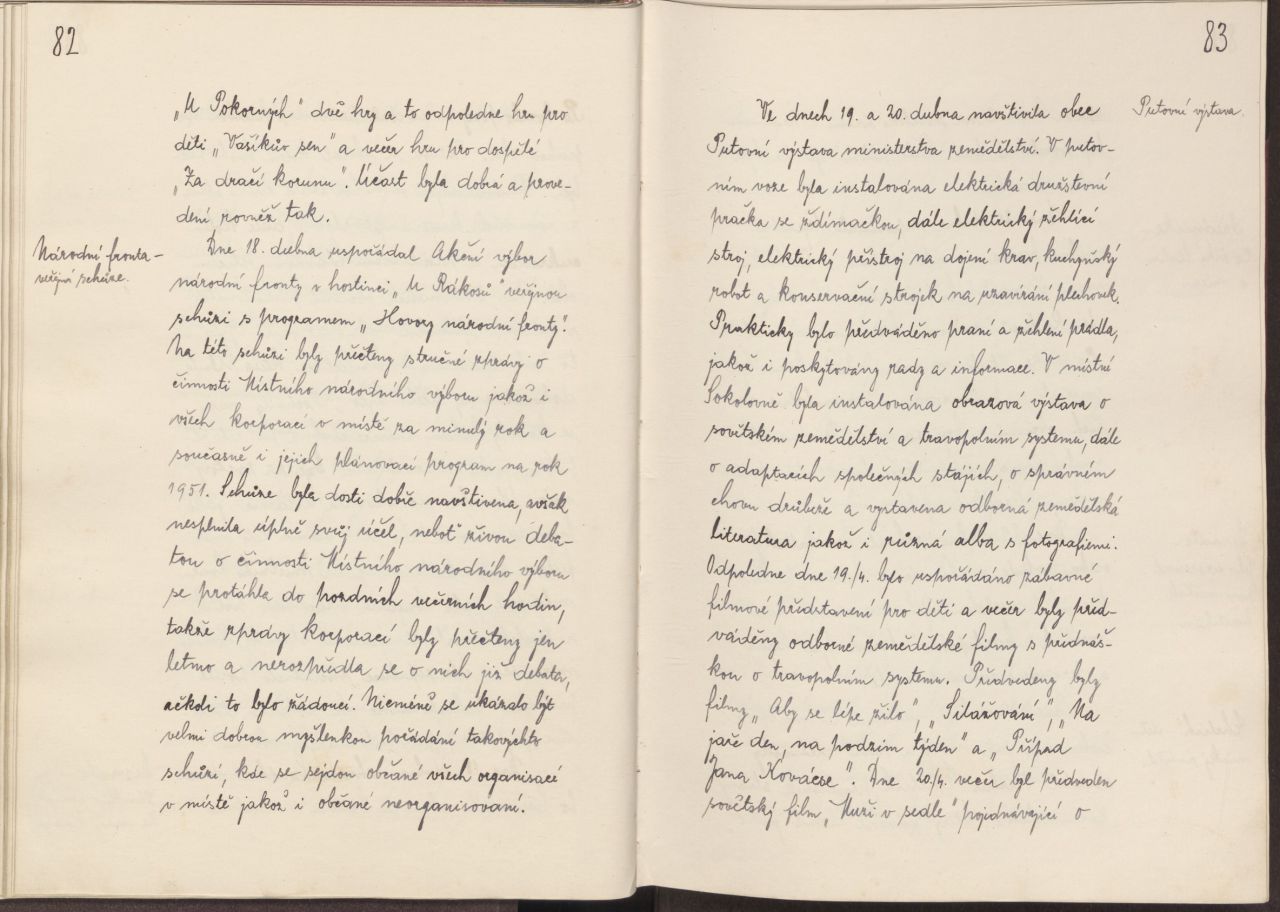 82
„U Pokorných" dvě hry a to odpoledne hru pro
děti „Vašíkův sen" a večer hru pro dospělé
„Za dračí korunu". Účast byla dobrá a prove-
dení rovněž tak.
Národní fronta –
veřejná schůze.
Dne 18. dubna uspořádal Akční výbor
národní fronty v hostinci „U Rákosů" veřejnou
schůzi s programem „Hovory národní fronty".
Na této schůzi byly přečteny stručné zprávy o
činnosti Místního národního výboru jakož i
všech korporací v místě za minulý rok a
současně i jejich plánovací program na rok
1951. Schůze byla dosti dobře navštívena, avšak
nesplnila úplně svůj účel, neboť živou deba-
tou o činnosti Místního národního výboru
se protáhla do pozdních večerních hodin,
takže zprávy korporací byly přečteny jen
letmo a nerozpředla se o nich již debata,
ačkoli to bylo žádoucí. Nicméně se ukázalo být
velmi dobrou myšlenkou pořádání takovýchto
schůzí, kde se sejdou občané všech organisací
v místě jakož i občané neorganisovaní.
83
Putovní výstava.
Ve dnech 19. a 20. dubna navštívila obec
Putovní výstava ministerstva zemědělství. V putov-
ním voze byla instalována elektrická družstevní
pračka se ždímačkou, dále elektrický žehlící
stroj, elektrický přístroj na dojení krav, kuchyňský
robot a konservační strojek na uzavírání plechovek.
Prakticky bylo předváděno praní a žehlení prádla,
jakož i poskytovány rady a informace. V místní
Sokolovně byla instalována obrazová výstava o
sovětském zemědělství a travopolním systemu, dále
o adaptacích společných stájích, o správném
chovu drůbeže a vystavena odborná zemědělská
literatura jakož i různá alba s fotografiemi.
Odpoledne dne 19./4. bylo uspořádáno zábavné
filmové představení pro děti a večer byly před-
váděny odborné zemědělské filmy s přednáš-
kou o travopolním systemu. Předvedeny byly
filmy „Aby se lépe žilo", „Silážování", „Na
jaře den, na podzim týden" a „Případ
Jana Kovácse". Dne 20/4. večer byl předveden
sovětský film „Muži v sedle" pojednávající o